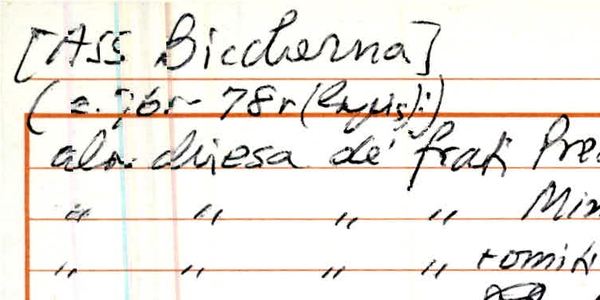 [ASS Biccherna]
(c. 76r - 78r
ala chiesa de' frati Pre
" " " " Min
" " " " romiti